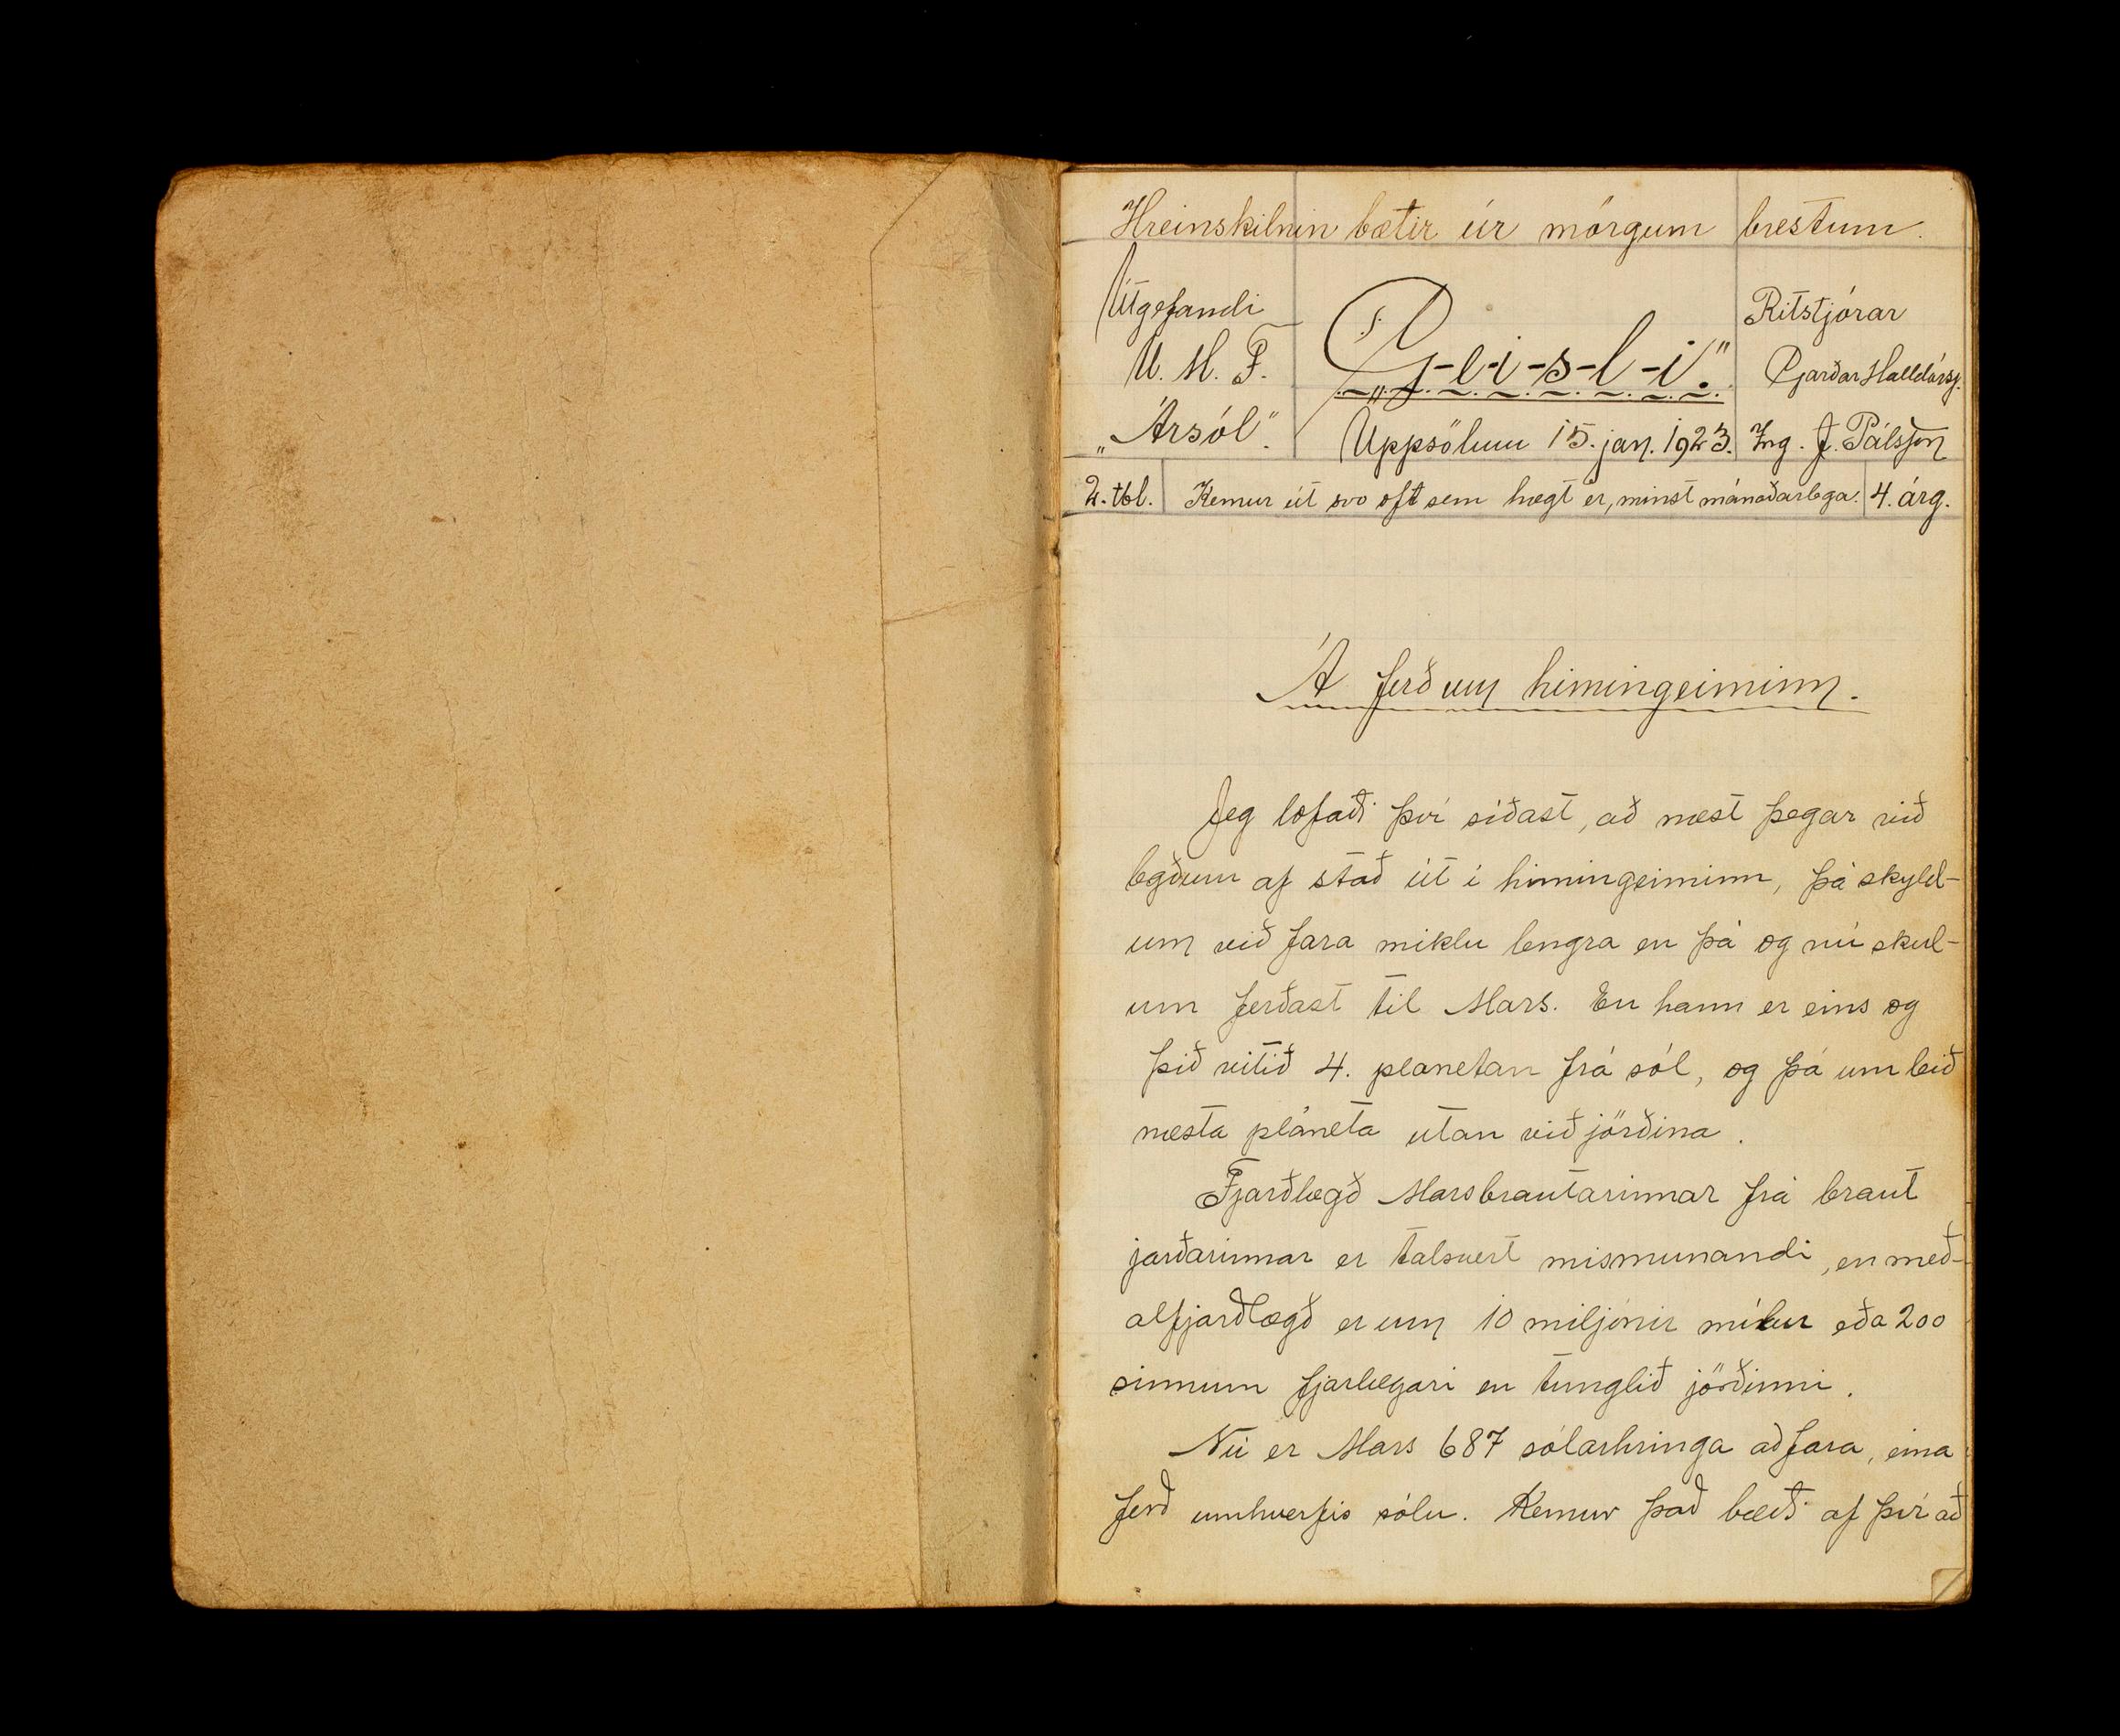 Hreinskilnin bætir úr mörgum brestum.
Útgefandi
U. M. F.
„Ársól".
„G-e-i-s-l-i".
Uppsölum 15. jan. 1923.
Ritstjórar
Garðar Halldórss.
Ing. J. Pálsson
2. tbl.
Kemur út svo oft sem hægt er, minst mánaðarlega.
4. árg.
Á ferð um himingeiminn.
Jeg lofaði því síðast, að næst þegar við
legðum af stað út í himingeiminn, þá skyld-
um við fara miklu lengra en þá og nú skul-
um ferðast til Mars. En hann er eins og
þið vitið 4. planetan frá sól, og þá um leið
næsta pláneta utan við jörðina.
Fjarðlægð Marsbrautarinnar frá braut
jarðarinnar er talsvert mismunandi, en með-
alfjarðlægð er um 10 miljónir mílur eða 200
sinnum fjarlægari en tunglið jörðinni.
Nú er Mars 687 sólarhringa að fara, eina
ferð umhverfis sólu. Kemur það bæði af því að